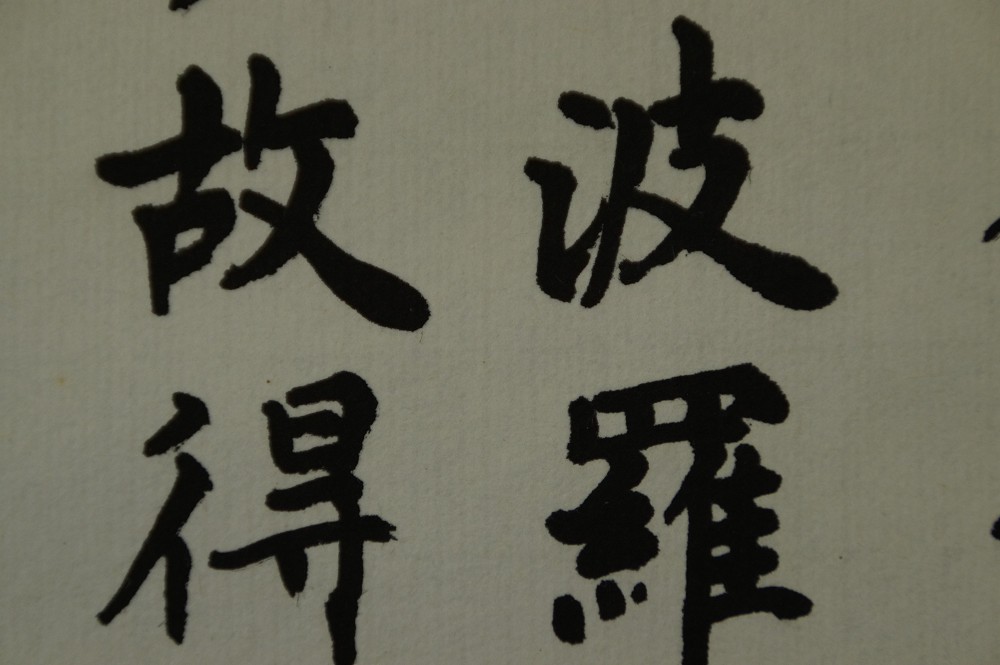 波羅
故得